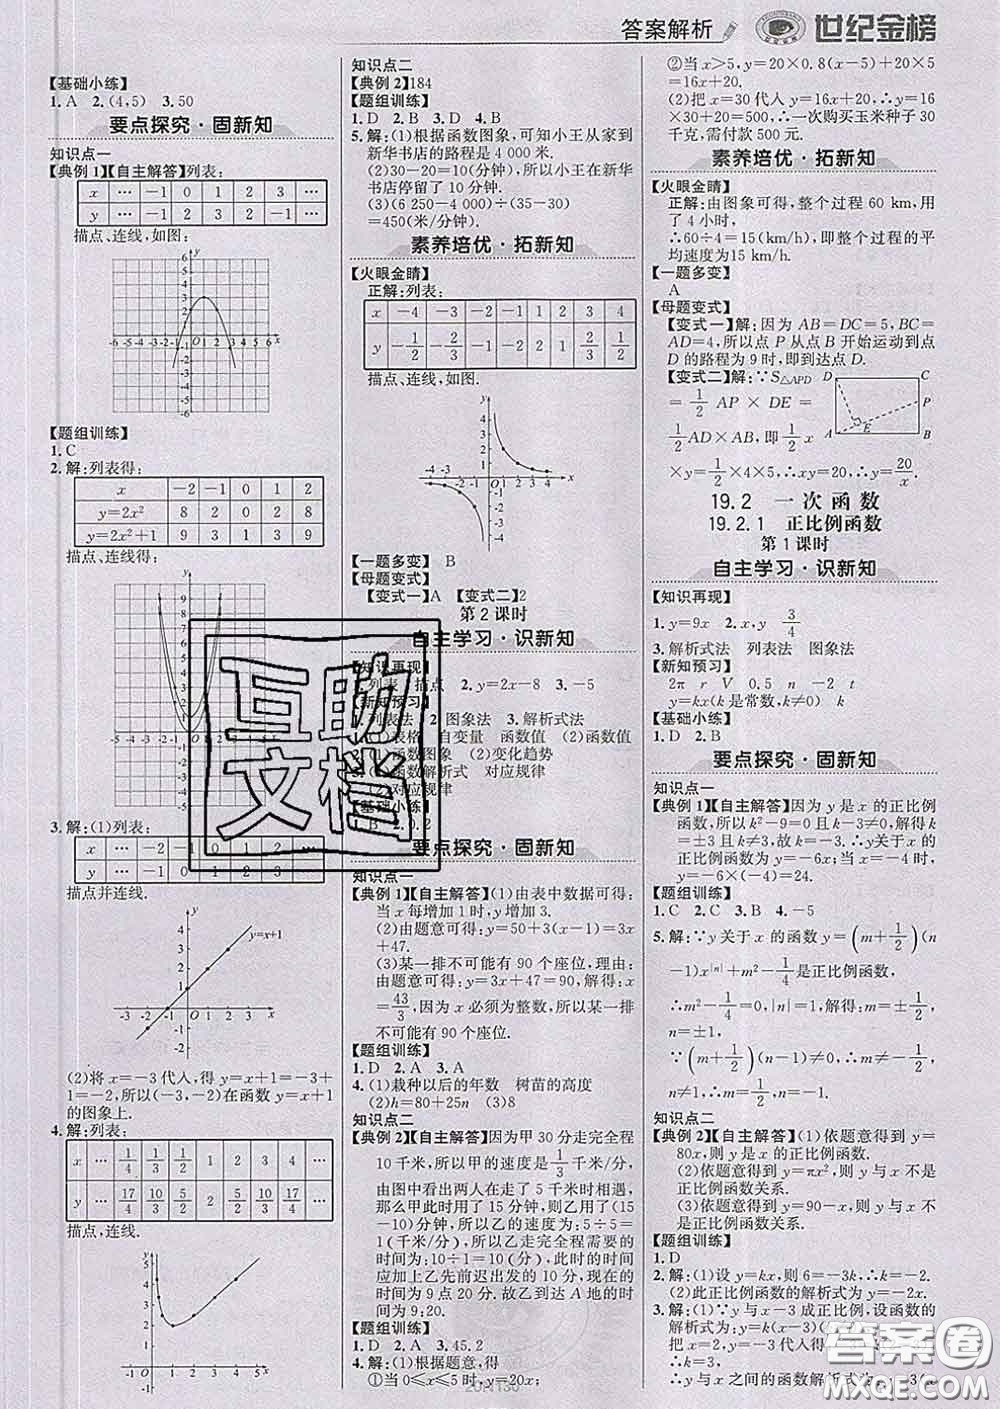 答案解析 世纪金榜
【基础小练】
1. A 2. (4,5) 3. 50
要点探究·固新知
知识点一
【典例1】【自主解答】列表:
x … -1 0 1 2 3 …
y … -1 2 3 2 -1 …
描点、连线,如图:
【题组训练】
1. C
2. 解:列表得:
x -2 -1 0 1 2
y=2x² 8 2 0 2 8
y=2x²+1 9 3 1 3 9
描点、连线得:
3. 解:(1)列表:
x … -2 -1 0 1 2 …
y … -1 0 1 2 3 …
描点并连线.
y=x+1
(2)将x=-3代入,得y=x+1=-3+
1=-2,所以(-3,-2)在函数y=x+1
的图象上.
4. 解:列表:
x … 1/4 1/3 1/2 1 2 3 4 …
y … 17/4 10/3 5/2 2 5/2 10/3 17/4 …
描点、连线.
知识点二
【典例2】184
【题组训练】
1. D 2. B 3. D 4. B
5. 解:(1)根据函数图象,可知小王从家到
新华书店的路程是4 000米.
(2)30-20=10(分钟),所以小王在新华
书店停留了10分钟.
(3)(6 250-4 000)÷(35-30)
=450(米/分钟).
素养培优·拓新知
【火眼金睛】
正解:列表:
x -4 -3 -2 -1 1 2 3 4
y -1/2 -2/3 -1 -2 2 1 2/3 1/2
描点、连线,如图.
【一题多变】 B
【母题变式】
【变式一】A 【变式二】2
第2课时
自主学习·识新知
【知识再现】
1. 列表 描点 2. y=2x-8 3. -5
【新知预习】
1. 列表法 2. 图象法 3. 解析式法
(1)表格 自变量 函数值 (2)函数值
(1)函数图象 (2)变化趋势
(1)函数解析式 对应规律
(2)对应规律
【基础小练】
B 2. 0.2
要点探究·固新知
知识点一
【典例1】【自主解答】(1)由表中数据可得:
当x每增加1时,y增加3.
(2)由题意可得:y=50+3(x-1)=3x
+47.
(3)某一排不可能有90个座位,理由:
由题意可得:y=3x+47=90,解得:x=
43/3,因为x必须为整数,所以某一排
不可能有90个座位.
【题组训练】
1. D 2. A 3. A
4. (1)栽种以后的年数 树苗的高度
(2)h=80+25n (3)8
知识点二
【典例2】【自主解答】因为甲30分走完全程
10千米,所以甲的速度是1/3千米/分,
由图中看出两人在走了5千米时相遇,
那么甲此时用了15分钟,则乙用了(15
-10)分钟,所以乙的速度为:5÷5=
1(千米/分),所以乙走完全程需要的
时间为:10÷1=10(分),此时的时间
应加上乙先前迟出发的10分,现在的
时间为9点20分.故乙到达A地的时间
为9:20.
【题组训练】
1. D 2. A 3. 45.2
4. 解:(1)根据题意,得
①当0≤x≤5时,y=20x;
②当x>5,y=20×0.8(x-5)+20×5
=16x+20.
(2)把x=30代入y=16x+20,∴y=16
×30+20=500,∴一次购买玉米种子30
千克,需付款500元.
素养培优·拓新知
【火眼金睛】
正解:由图象可得,整个过程60 km,用
了4小时,
∴60÷4=15(km/h),即整个过程的平
均速度为15 km/h.
【一题多变】
A
【母题变式】
【变式一】解:因为AB=DC=5,BC=
AD=4,所以点P从点B开始运动到点
D的路程为9时,即到达点D.
【变式二】解:∵S△APD
=1/2 AP×DE=
1/2 AD×AB,即1/2 x
×y=1/2×4×5,∴xy=20,∴y=20/x.
19.2 一次函数
19.2.1 正比例函数
第1课时
自主学习·识新知
【知识再现】
1. y=9x 2. x,y 3/4
3. 解析式法 列表法 图象法
【新知预习】
2π r V 0.5 n -2 t
y=kx(k是常数,k≠0) k
【基础小练】
1. D 2. B
要点探究·固新知
知识点一
【典例1】【自主解答】因为y是x的正比例
函数,所以k²-9=0且k-3≠0,解得k
=±3且k≠3,∴k=-3,∴正比例函数
解析式为y=-6x;当x=-4时,y=
-6×(-4)=24.
【题组训练】
1. C 2. C 3. B 4. -5
5. 解:∵y关于x的函数y=(m+1/2)(n
-1)x^|n|+m²-1/4是正比例函数,
∴m²-1/4=0,|n|=1,解得:m=±1/2,
n=±1,
∵(m+1/2)(n-1)≠0,∴m=1/2,
n=-1.
知识点二
【典例2】【自主解答】(1)依题意得到y=
80x,则y是x的正比例函数.
(2)依题意得到y=πx²,则y与x不是
正比例函数关系.
(3)依题意得到y=90-x,则y与x不是
正比例函数关系.
【题组训练】
1. D
2. 解:(1)设y=kx,则6=-3k,∴k=-2.
(2)此正比例函数的解析式为y=-2x.
3. 解:(1)∵y与x-3成正比例,设函数的
解析式为:y=k(x-3)(
把x=2,y=-
∴y与x之间的函数解析式为:y=3x
互助文档
答案卷
MXQE.COM